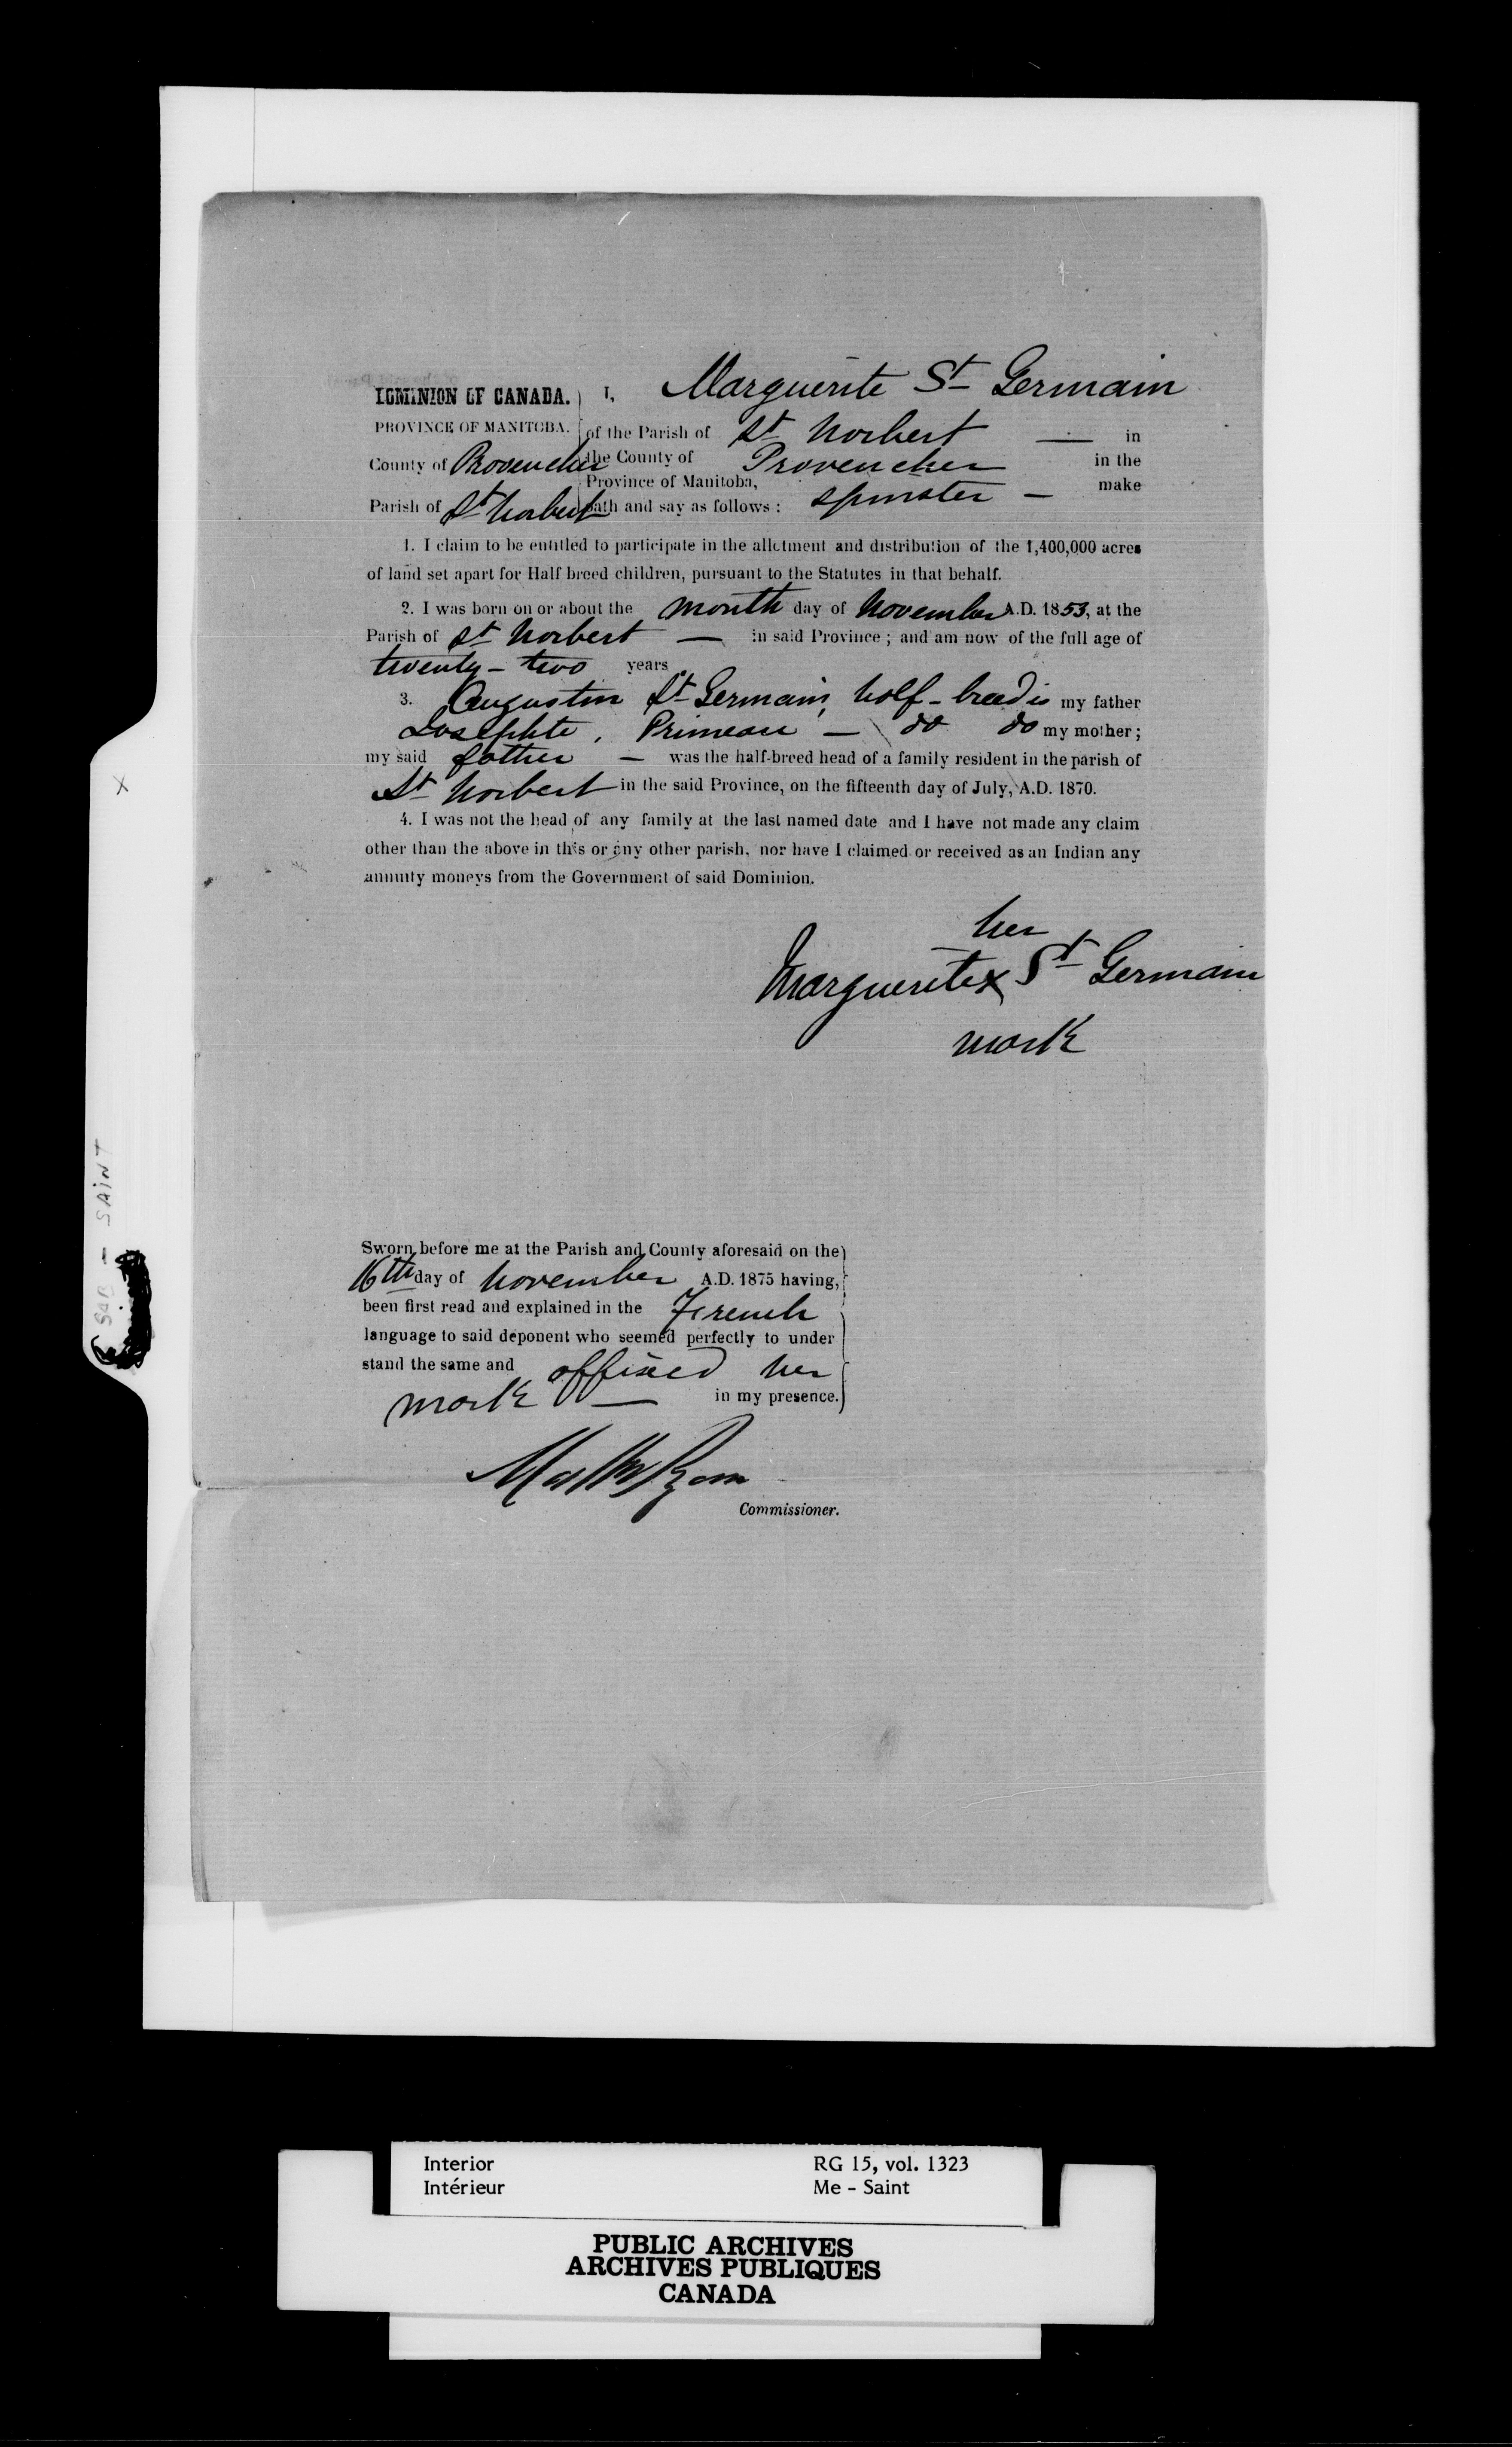 DOMINION OF CANADA. I, Marguerite St Germain
PROVINCE OF MANITOBA. of the Parish of St Norbert — in
County of Provencher the County of Provencher in the
Province of Manitoba, spinster — make
Parish of St Norbert oath and say as follows :
1. I claim to be entitled to participate in the allotment and distribution of the 1,400,000 acres
of land set apart for Half breed children, pursuant to the Statutes in that behalf.
2. I was born on or about the month day of November A.D. 1853, at the
Parish of St Norbert — in said Province ; and am now of the full age of
twenty-two years
3. Augustin St Germain, half-breed is my father
Josephte, Primeau — do do my mother ;
my said father — was the half-breed head of a family resident in the parish of
St Norbert in the said Province, on the fifteenth day of July, A.D. 1870.
4. I was not the head of any family at the last named date and I have not made any claim
other than the above in this or any other parish, nor have I claimed or received as an Indian any
annuity moneys from the Government of said Dominion.
her
Marguerite x St Germain
mark
Sworn before me at the Parish and County aforesaid on the
16th day of November A.D. 1875 having,
been first read and explained in the French
language to said deponent who seemed perfectly to under
stand the same and affixed her
mark — in my presence.
Matthew Ryan
Commissioner.
x
SAB - SAINT
Interior RG 15, vol. 1323
Intérieur Me - Saint
PUBLIC ARCHIVES
ARCHIVES PUBLIQUES
CANADA